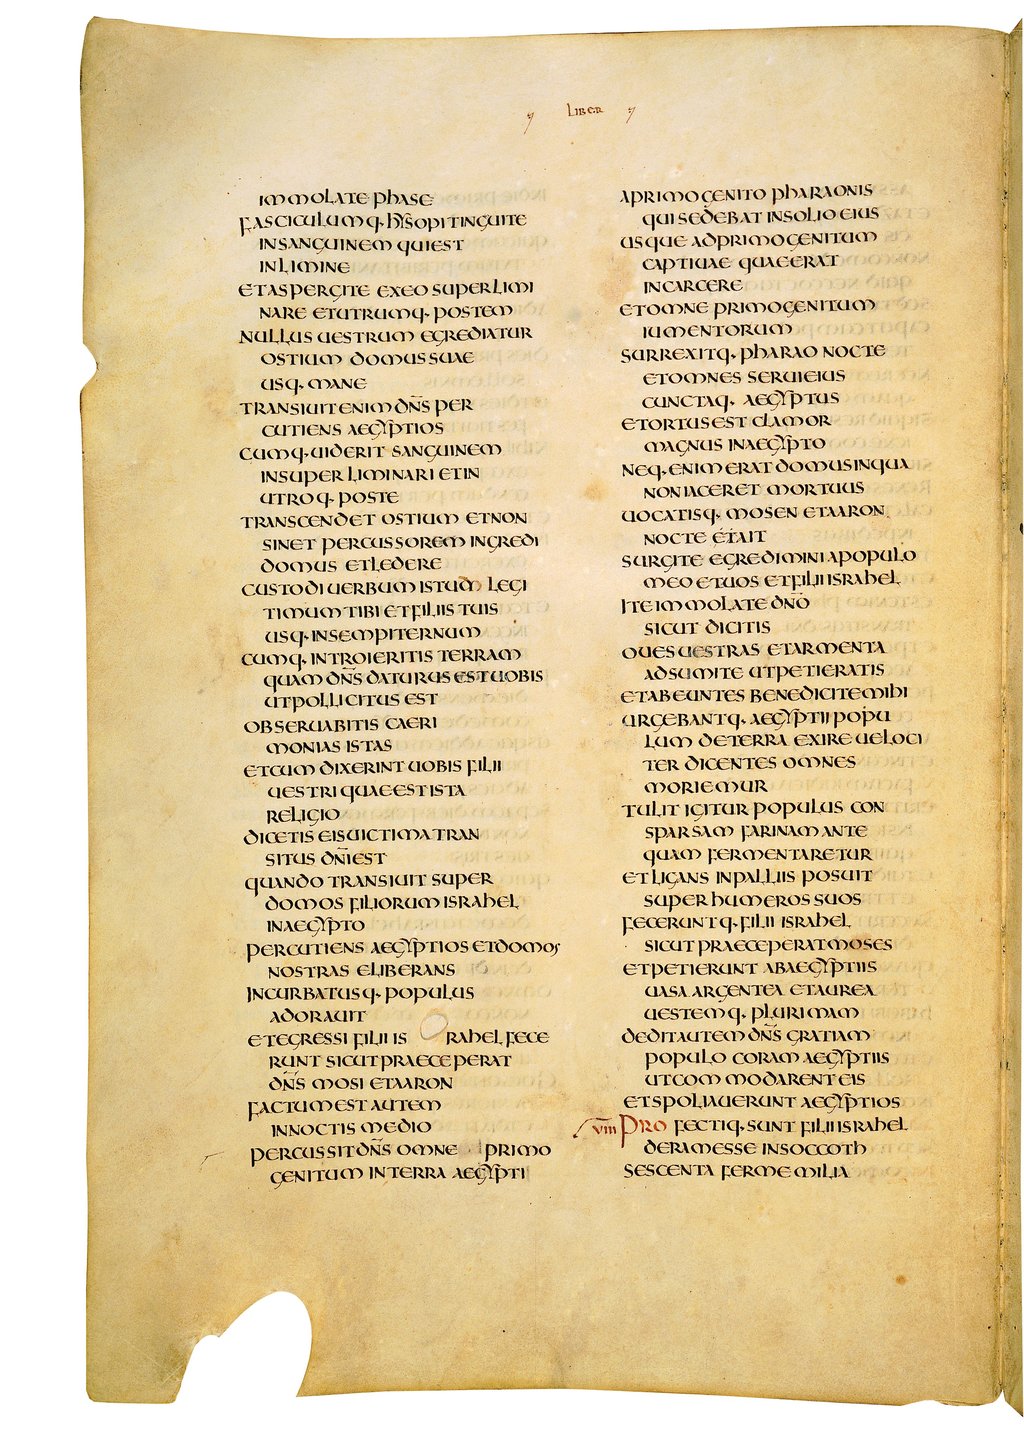 LIBER
IMMOLATE PHASE
FASCICULUMQ· HYSOPI TINGUITE
IN SANGUINEM QUI EST
IN LIMINE
ET ASPERGITE EX EO SUPERLIMI
NARE ET UTRUMQ· POSTEM
NULLUS UESTRUM EGREDIATUR
OSTIUM DOMUS SUAE
USQ· MANE
TRANSIUIT ENIM DN̅S PER
CUTIENS AEGYPTIOS
CUMQ· UIDERIT SANGUINEM
IN SUPERLIMINARI ET IN
UTROQ· POSTE
TRANSCENDET OSTIUM ET NON
SINET PERCUSSOREM INGREDI
DOMUS ET LEDERE
CUSTODI UERBUM ISTUD LEGI
TIMUM TIBI ET FILIIS TUIS
USQ· IN SEMPITERNUM
CUMQ· INTROIERITIS TERRAM
QUAM DN̅S DATURUS EST UOBIS
UT POLLICITUS EST
OBSERUABITIS CAERI
MONIAS ISTAS
ET CUM DIXERINT UOBIS FILII
UESTRI QUAE EST ISTA
RELIGIO
DICETIS EIS UICTIMA TRAN
SITUS DN̅I EST
QUANDO TRANSIUIT SUPER
DOMOS FILIORUM ISRAHEL
IN AEGYPTO
PERCUTIENS AEGYPTIOS ET DOMOS
NOSTRAS ELIBERANS
INCURBATUSQ· POPULUS
ADORAUIT
ET EGRESSI FILII IS RAHEL FECE
RUNT SICUT PRAECEPERAT
DN̅S MOSI ET AARON
FACTUM EST AUTEM
IN NOCTIS MEDIO
PERCUSSIT DN̅S OMNE PRIMO
GENITUM IN TERRA AEGYPTI
A PRIMOGENITO PHARAONIS
QUI SEDEBAT IN SOLIO EIUS
USQUE AD PRIMOGENITUM
CAPTIUAE QUAE ERAT
IN CARCERE
ET OMNE PRIMOGENITUM
IUMENTORUM
SURREXITQ· PHARAO NOCTE
ET OMNES SERUI EIUS
CUNCTAQ· AEGYPTUS
ET ORTUS EST CLAMOR
MAGNUS IN AEGYPTO
NEQ· ENIM ERAT DOMUS IN QUA
NON IACERET MORTUUS
UOCATISQ· MOSEN ET AARON
NOCTE ET AIT
SURGITE EGREDIMINI A POPULO
MEO ET UOS ET FILII ISRAHEL
ITE IMMOLATE DN̅O
SICUT DICITIS
OUES UESTRAS ET ARMENTA
ADSUMITE UT PETIERATIS
ET ABEUNTES BENEDICITE MIHI
URGEBANTQ· AEGYPTII POPU
LUM DE TERRA EXIRE UELOCI
TER DICENTES OMNES
MORIEMUR
TULIT IGITUR POPULUS CON
SPARSAM FARINAM ANTE
QUAM FERMENTARETUR
ET LIGANS IN PALLIIS POSUIT
SUPER HUMEROS SUOS
FECERUNTQ· FILII ISRAHEL
SICUT PRAECEPERAT MOSES
ET PETIERUNT AB AEGYPTIIS
UASA ARGENTEA ET AUREA
UESTEMQ· PLURIMAM
DEDIT AUTEM DN̅S GRATIAM
POPULO CORAM AEGYPTIIS
UT COMMODARENT EIS
ET SPOLIAUERUNT AEGYPTIOS
VIIII PROFECTIQ· SUNT FILII ISRAHEL
DE RAMESSE IN SOCCOTH
SESCENTA FERME MILIA